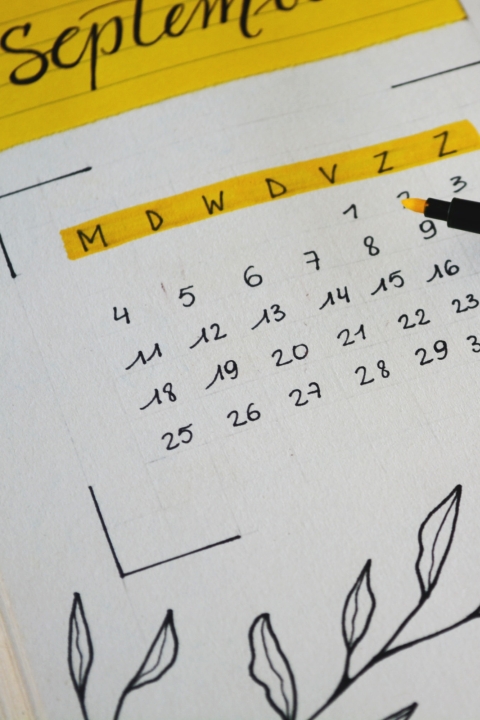 Septem
M D W D V Z Z
1 2 3
4 5 6 7 8 9
11 12 13 14 15 16
18 19 20 21 22 23
25 26 27 28 29 3